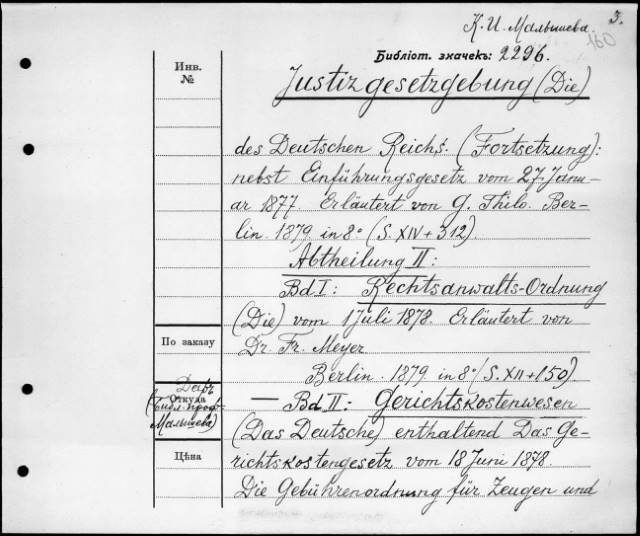 К. И. Малышева.
3.
160
Библіот. значекъ: 2296.
Инв.
№
Justizgesetzgebung (Die)
des Deutschen Reichs. (Fortsetzung):
nebst Einführungsgesetz vom 27. Janu-
ar 1877. Erläutert von G. Thilo. Ber-
lin. 1879. in 8° (S. XIV + 312).
Abtheilung II:
Bd I: Rechtsanwalts-Ordnung
(Die) vom 1 Juli 1878. Erläutert von
По заказу
Dr. Fr. Meyer
Berlin. 1879 in 8° (S. XII + 150).
Даръ
Откуда
(Библ. проф.
Малышева)
— Bd II: Gerichtskostenwesen
(Das Deutsche) enthaltend Das Ge-
Цѣна
richtskostengesetz vom 18 Juni 1878.
Die Gebührenordnung für Zeugen und